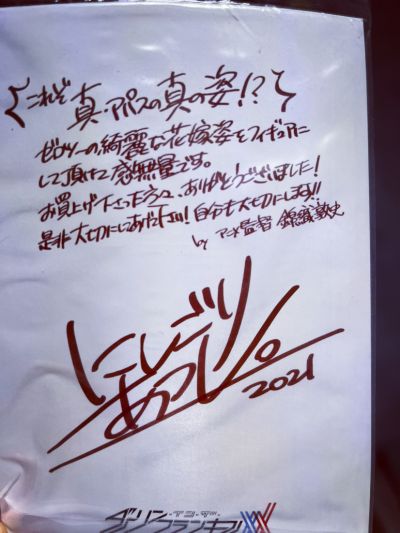 これぞ真・アパスの真の姿!?
ゼロツーの綺麗な花嫁姿をフィギュアに
して頂けて感無量です。
お買上げ下さった方々、ありがとうございました!
是非大切にしてあげて下さい!自分も大切にします!!
by アニメ監督 錦織敦史
ニシゴリ
あつし。
2021
ダーリン・イン・ザ・フランキス